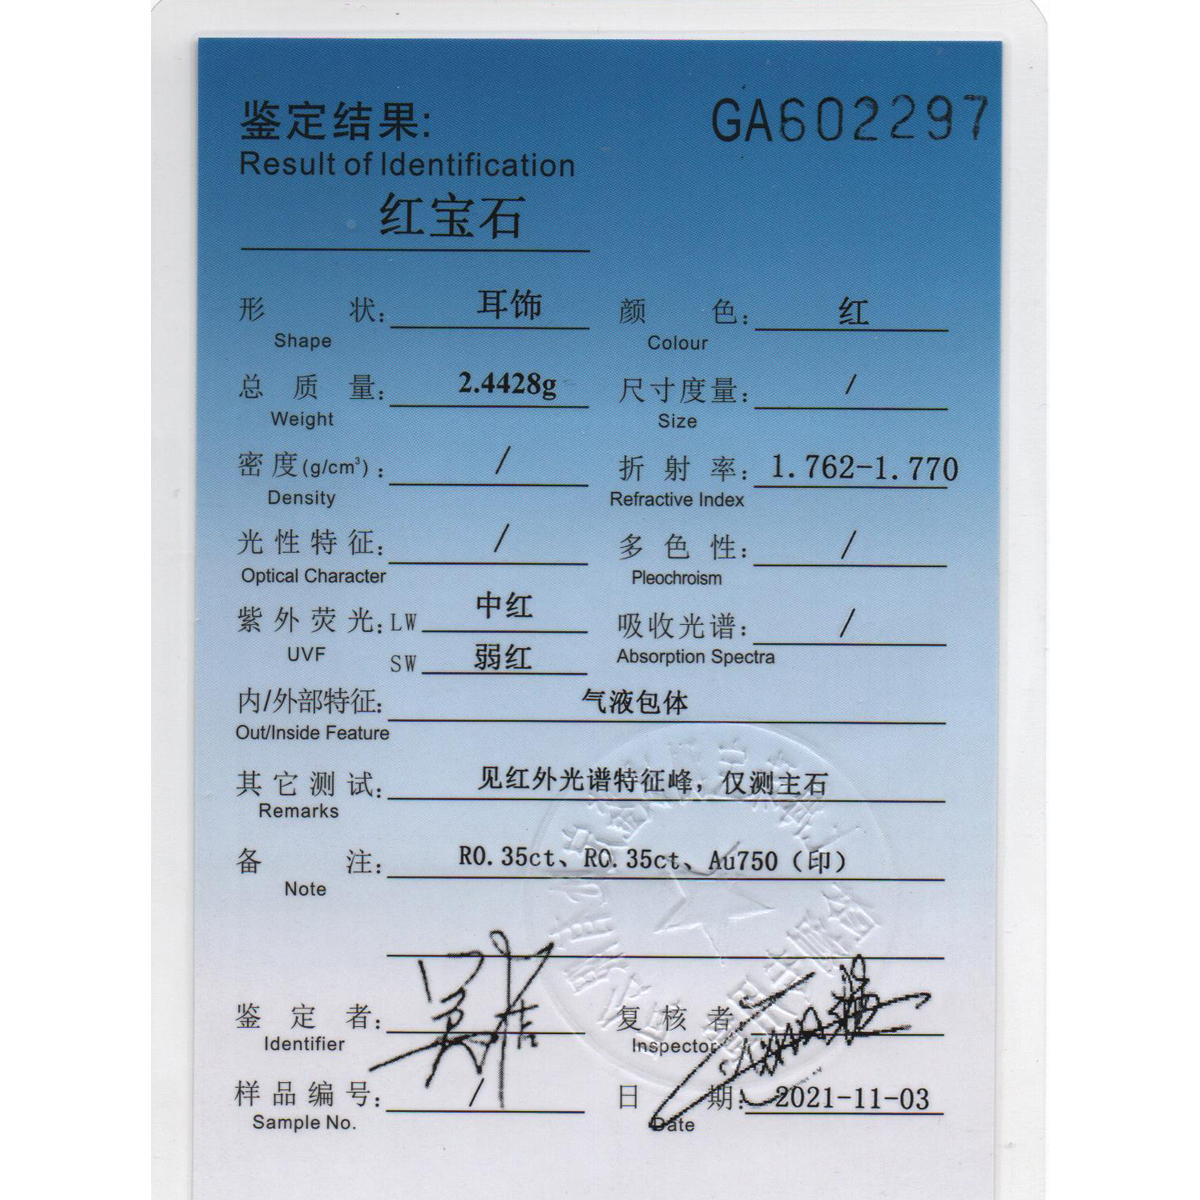 鉴定结果: GA602297
Result of Identification
红宝石
形 状: 耳饰 颜 色: 红
Shape Colour
总 质 量: 2.4428g 尺寸度量: /
Weight Size
密度(g/cm³): / 折 射 率: 1.762-1.770
Density Refractive Index
光性特征: / 多 色 性: /
Optical Character Pleochroism
紫外荧光: LW 中红 吸收光谱: /
UVF SW 弱红 Absorption Spectra
内/外部特征: 气液包体
Out/Inside Feature
其它测试: 见红外光谱特征峰，仅测主石
Remarks
备 注: R0.35ct、R0.35ct、Au750（印）
Note
鉴 定 者: 复 核 者:
Identifier Inspector
样品编号: / 日 期: 2021-11-03
Sample No. Date